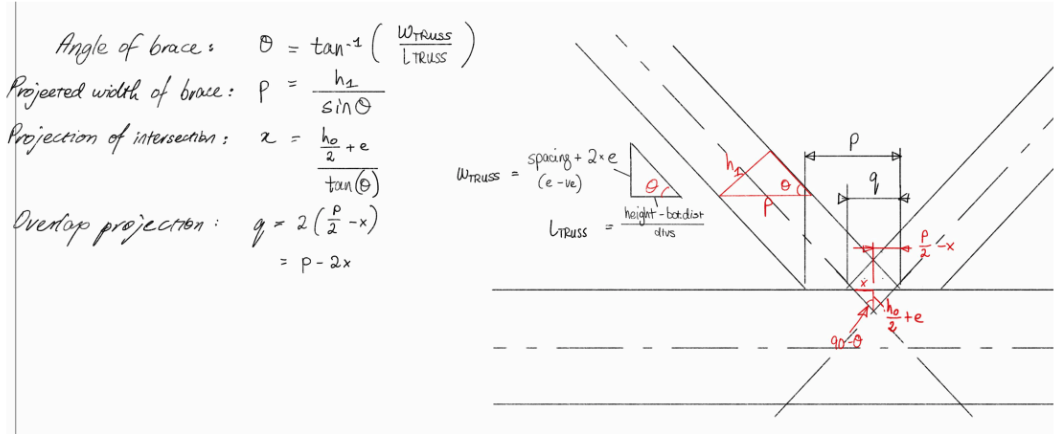 Angle of brace: θ = tan⁻¹ ( W_TRUSS / L_TRUSS )
Projected width of brace: p = h₁ / sin θ
Projection of intersection: x = (h₀/2 + e) / tan(θ)
Overlap projection: q = 2 ( p/2 - x )
= p - 2x
W_TRUSS = spacing + 2 × e
(e -ve)
θ
L_TRUSS = height - botdist / divs
h₁
θ
p
p
q
p/2 - x
x
h₀/2 + e
90-θ